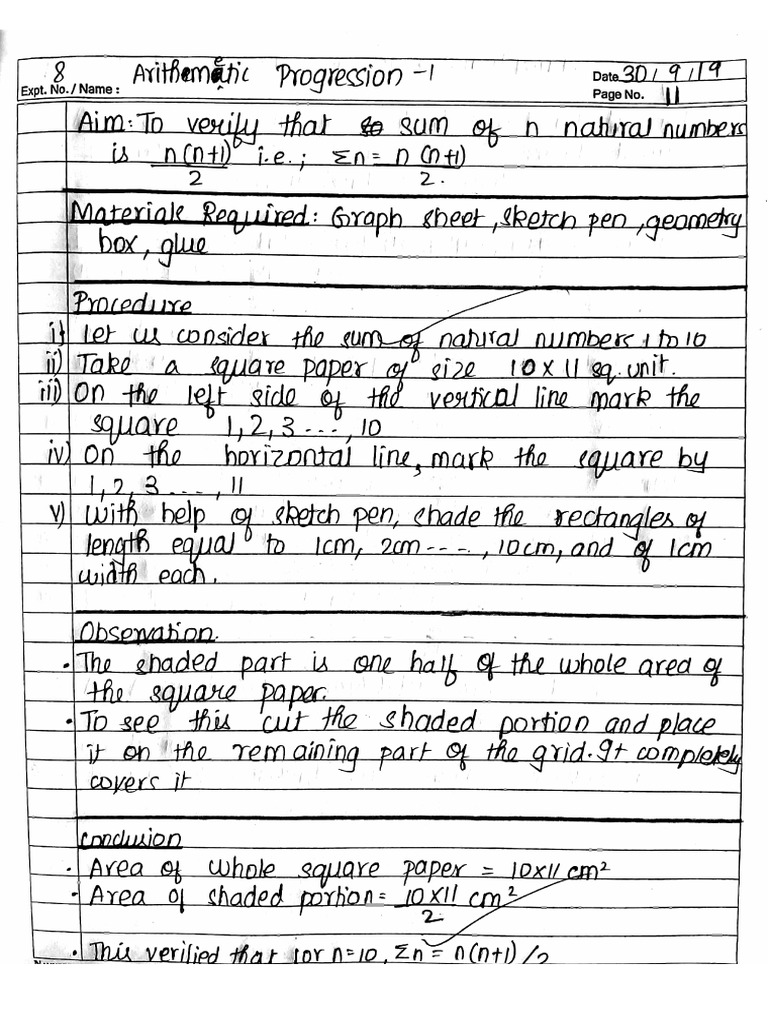 8 Arithematic Progression -1 Date 30/9/19
Expt. No. / Name : Page No. 11
Aim: To verify that sum of n natural numbers
is n(n+1)/2 i.e.; Σn = n(n+1)/2.
Materials Required: Graph sheet, sketch pen, geometry
box, glue
Procedure
i) Let us consider the sum of natural numbers 1 to 10
ii) Take a square paper of size 10 x 11 sq. unit.
iii) On the left side of the vertical line mark the
square 1, 2, 3 ---, 10
iv) On the horizontal line, mark the square by
1, 2, 3 ----, 11
v) With help of sketch pen, shade the rectangles of
length equal to 1cm, 2cm ----, 10cm, and of 1cm
width each.
Observation.
• The shaded part is one half of the whole area of
the square paper.
• To see this cut the shaded portion and place
it on the remaining part of the grid. It completely
covers it
Conclusion
• Area of whole square paper = 10x11 cm²
• Area of shaded portion = 10x11/2 cm²
• This verified that for n=10, Σn = n(n+1)/2